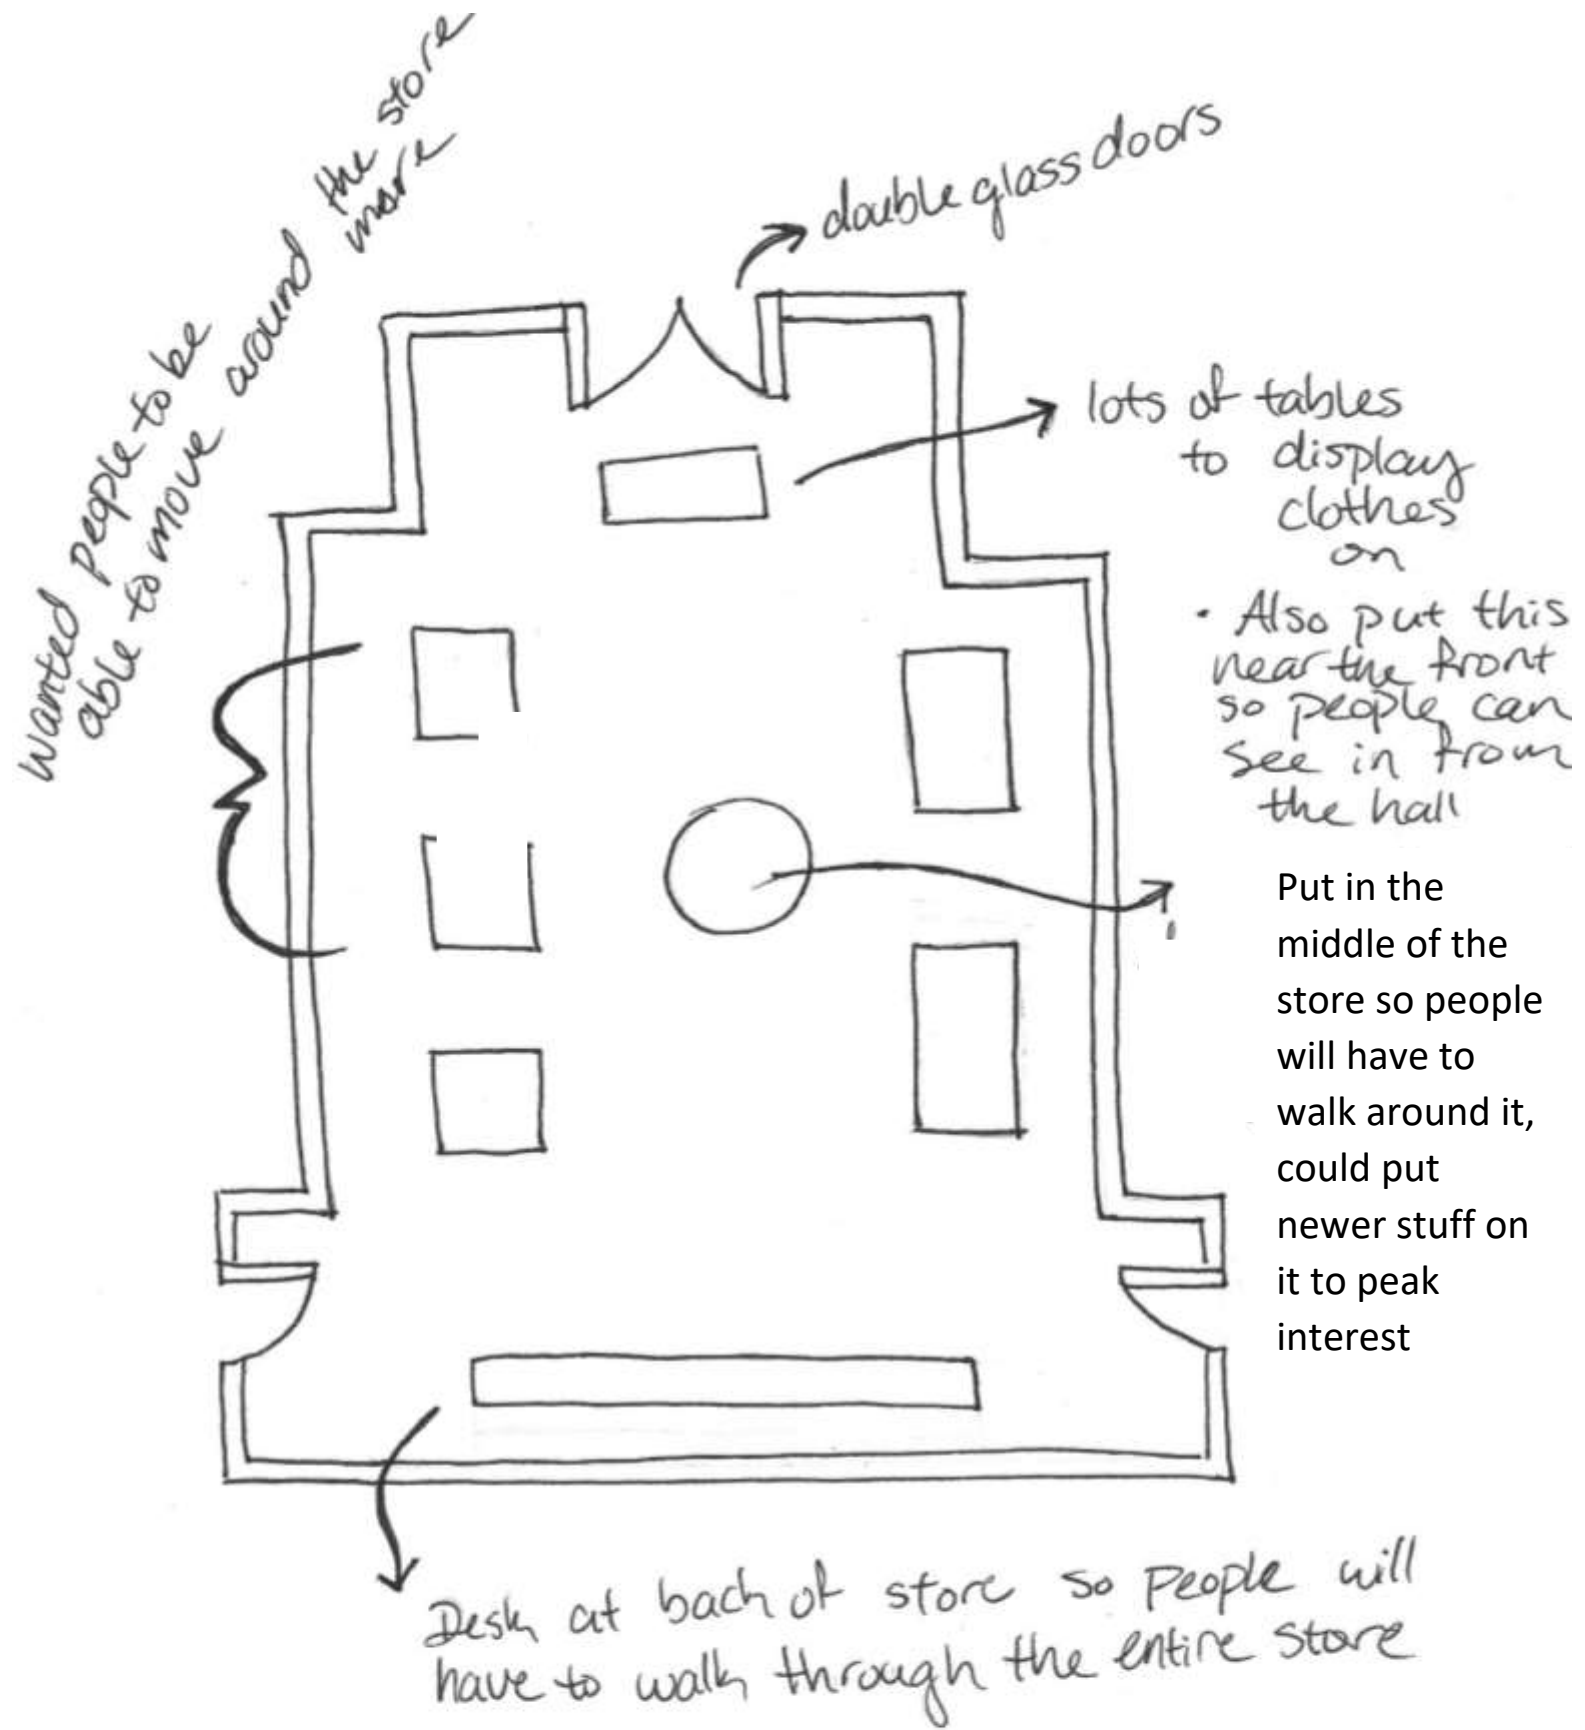 wanted people to be
able to move around the store
more
double glass doors
lots of tables
to display
clothes
on
· Also put this
near the front
so people can
see in from
the hall
Put in the
middle of the
store so people
will have to
walk around it,
could put
newer stuff on
it to peak
interest
Desk at back of store so people will
have to walk through the entire store